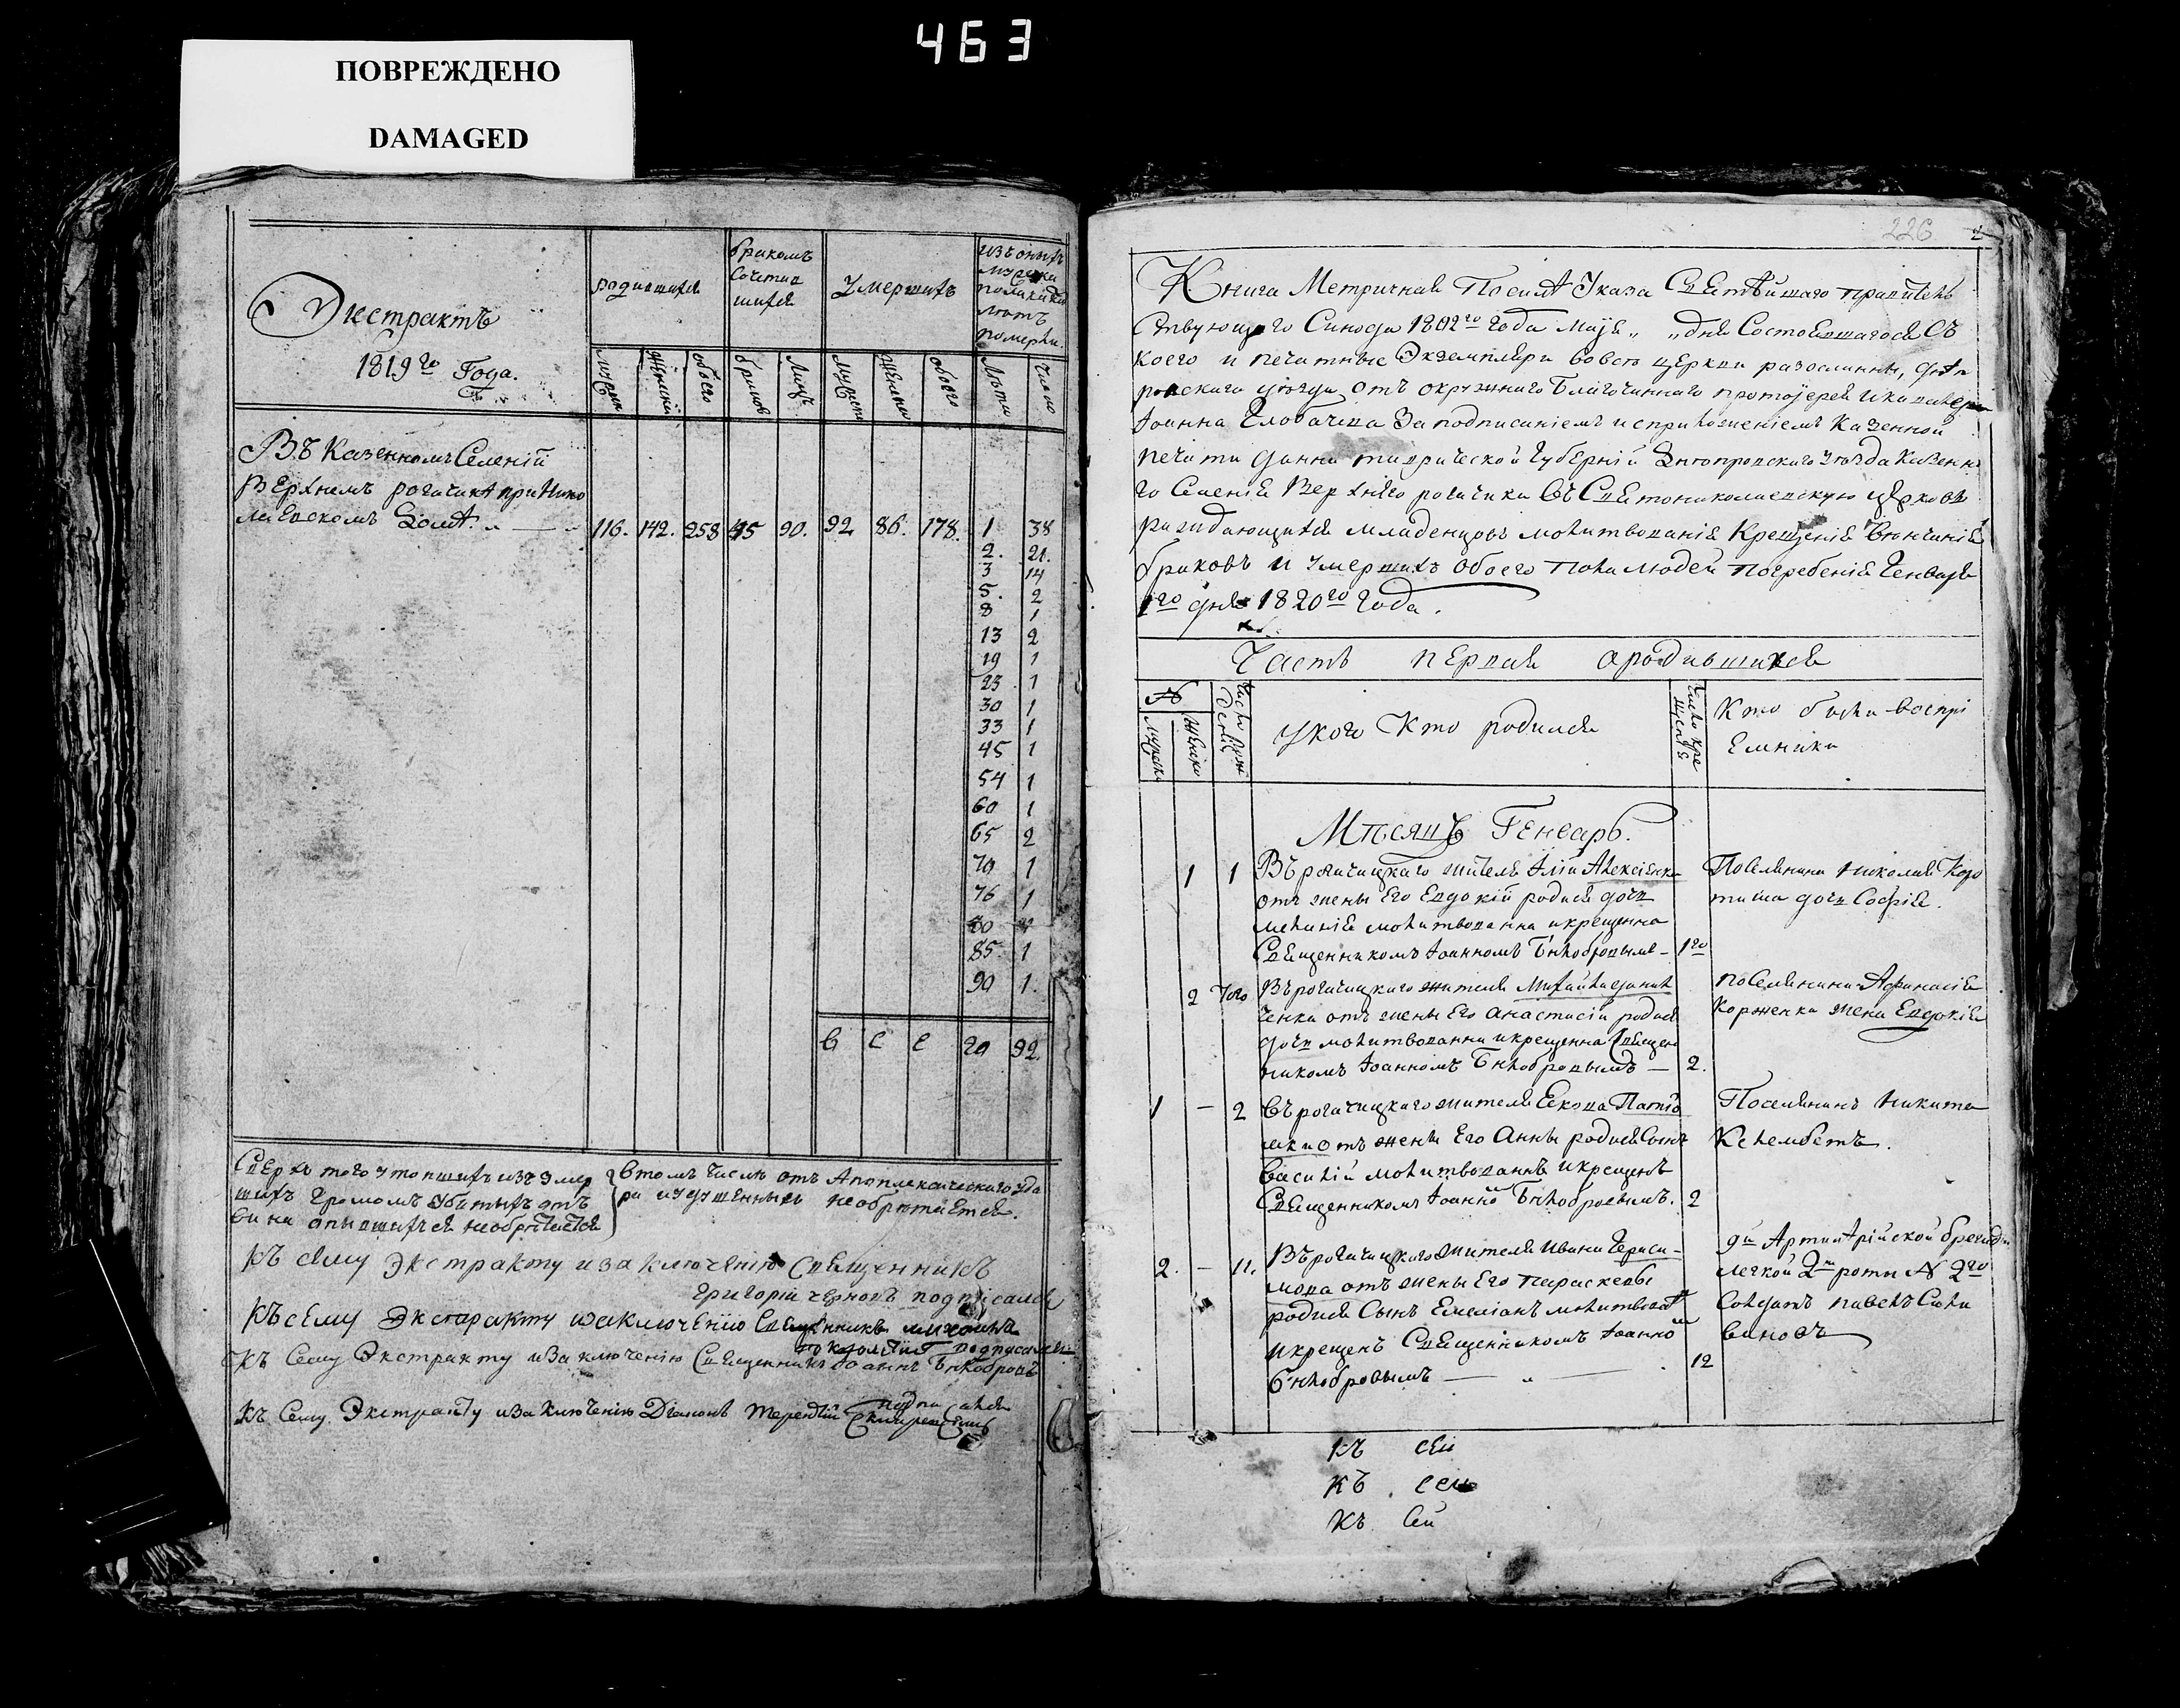 463
ПОВРЕЖДЕНО
DAMAGED
Экстрактъ
1819го Года.
родившихся
бракомъ
Сочетав
шихся
Умершихъ
изъ оныхъ
мужеска
пола какихъ
лѣтъ
померли.
мужеска
женска
обоего
браковъ
Лицъ
мужеска
женска
обоего
Лѣта
Число
Въ Казенномъ Селеніи
Верхнемъ рогачикѣ при Нико
лаевскомъ Домѣ. 116. 142. 258 45 90. 92 86. 178. 1 38
2. 21.
3 14
5. 2
8 1
13 2
19 1
23 1
30 1
33 1
45 1
54 1
60 1
65 2
70 1
76 1
80
85. 1
90 1.
в с е го 92.
Сверхъ того утопшихъ изъ Умер
шихъ Громомъ Убитыхъ отъ
вина опившихся необрѣтается
втомъ числѣ отъ Апоплексическаго уда
ра изудушенныхъ необрѣтается.
Къ сему Экстракту изаключенію Священникъ
Григорій черновъ подписался
Къ сему Экстаракту изаключенію Священникъ михаилъ
подписался
Къ Сему Экстракту изаключенію Священникъ Іоаннъ Бѣлобровъ
подписался
Къ Сему Экстракту изаключенію Діаконъ Терентій
226
Книга Метричная Послѣ Указа Святѣйшаго правитель
ствующаго Синода 1802го года Маія „ „ дня Состоявшагося Съ
коего и печатные Экземпляри вовсѣ церкви разосланны, Днѣп
ровскаго уѣзда отъ окружнаго Благочиннаго протоіерея икавалера
Іоанна Глобачева Заподписаніемъ исприложеніемъ Казенной
печати данна таврической Губерніи Днѣпровскаго Уѣзда Казенна
го Селенія Верхняго рогачика въ Святониколаевскую церковь
раждающихся младенцовъ молитвованія Крещенія Вѣнчанія
браковъ и Умершихъ обоего пола людей погребенія Генваря
1го дня 1820го Года.
Часть первая ородившихся
№
мужеска
женска
Число рож
денія
Укого Кто родился
Число кре
щенія
Кто были воспрі
Емники
Мѣсяцъ Генварь.
1 1 Въ рогачицкаго жителя Іліи Алексіенка
отъ жены Его Евдокіи родися дочь
меланія молитвованна икрещенна
Священникомъ Іоанномъ Бѣлобровымъ – 1го
Поселянина Николая Коро
таша дочь Софія.
2 Того Въ рогачицкаго жителя
ченка отъ жены Его Анастасіи родися
дочь молитвованна икрещенна Священ
никомъ Іоанномъ Бѣлобровымъ — 2.
поселянина Афанасія
Корженка жена Евдокія
1 – 2 въ рогачицкаго жителя Іакова
отъ жены Его Анны родися Сынъ
василій молитвованъ икрещенъ
Священникомъ Іоанно Бѣлобровымъ. 2
Поселянинъ Никита
Келембетъ.
2. – 11. Въ рогачицкаго жителя Ивана Гераси-
мова отъ жены Его параскевы
родися Сынъ Емеліанъ молитвован
икрещенъ Священникомъ Іоанно
Бѣлобровымъ — „ — 12
9й Артилерійской бригады
легкой 2й роты № 2го
Солдатъ павелъ Сели
вановъ
Къ сей
Къ сей
Къ сей